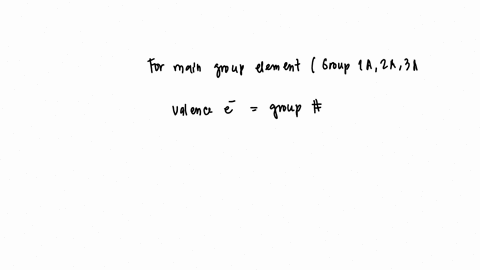 For main group element ( Group 1A, 2A, 3A
valence e⁻ = group #